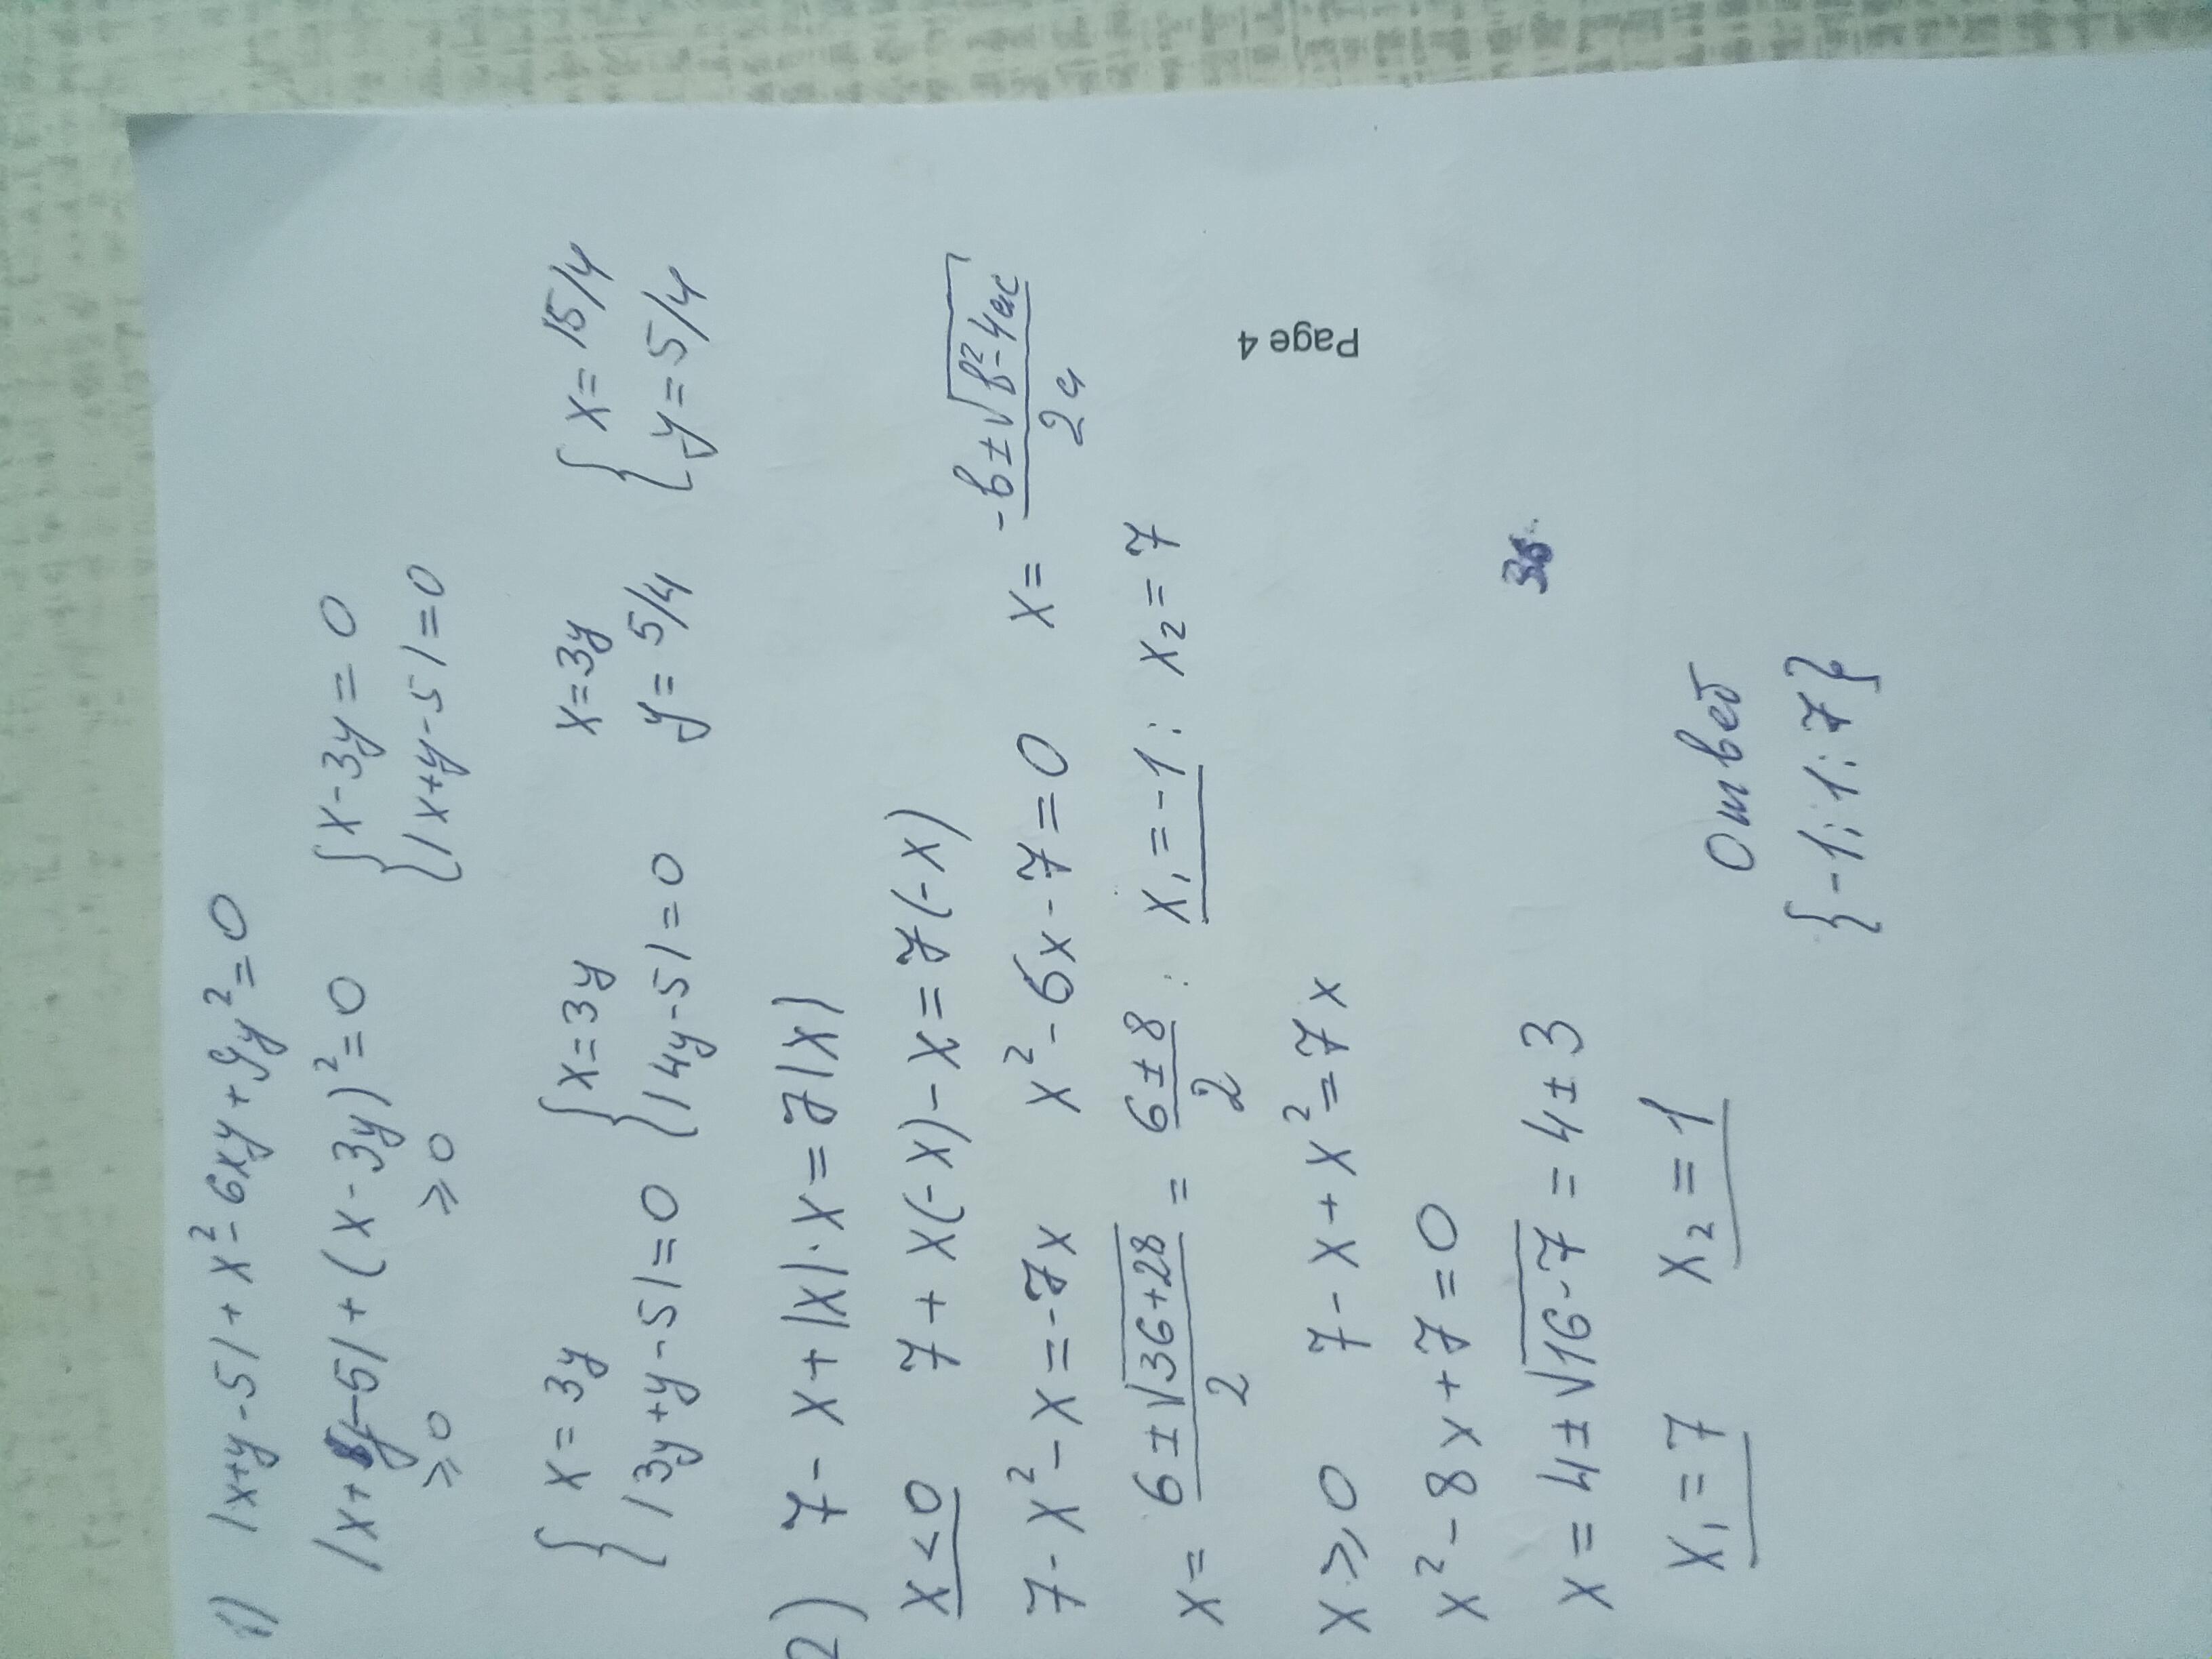 1) |x+y-5|+x²-6xy+9y²=0
|x+y-5|+(x-3y)²=0 {x-3y=0
≥0 ≥0 {|x+y-5|=0
{x=3y {x=3y x=3y {x=15/4
{|3y+y-5|=0 {|4y-5|=0 y=5/4 {y=5/4
2) 7-x+|x|·x=7|x|
x<0 7+x(-x)-x=7(-x)
7-x²-x=-7x x²-6x-7=0 x=(-b±√(b²-4ac))/2a
x=(6±√(36+28))/2=(6±8)/2: x₁=-1; x₂=7
Page 4
x≥0 7-x+x²=7x
x²-8x+7=0
x=4±√(16-7)=4±3
x₁=7 x₂=1
Ответ
{-1; 1; 7}